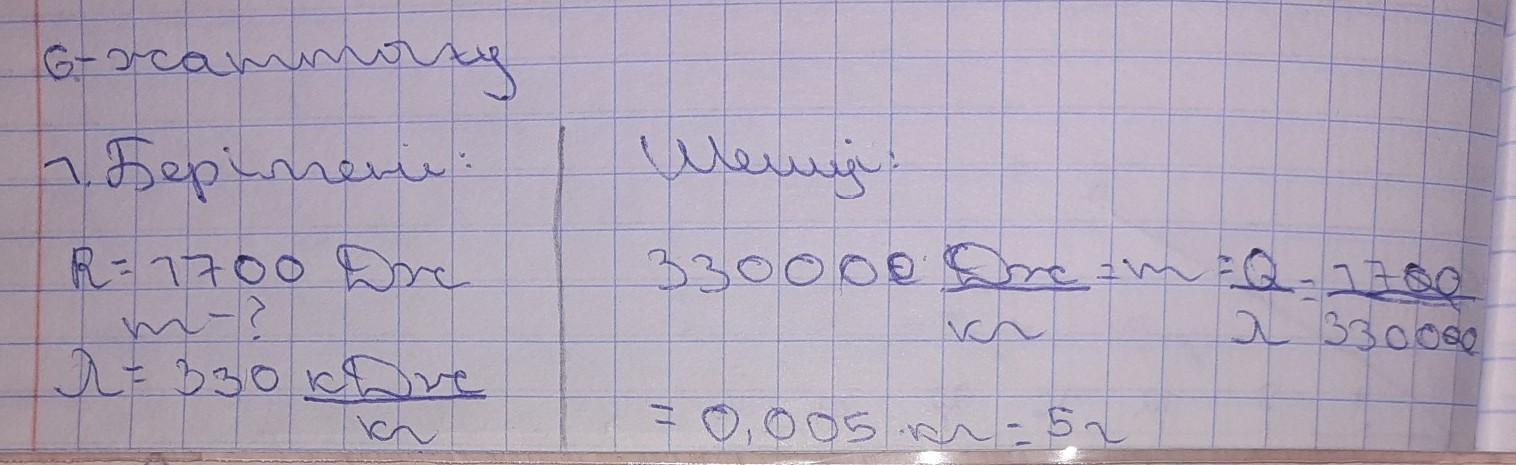 6-жаттығу
1. Берілгені:
R=1700 Дж
m-?
λ= 330 кДж/кг
Шешуі:
330000 Дж/кг = m = Q/λ = 1700/330000
= 0,005 кг = 5г